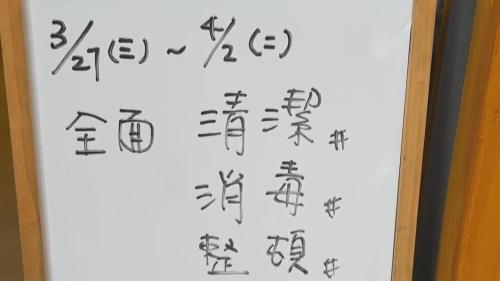 3/27(三)~4/2(二)
全面 清潔#
消毒#
整頓#